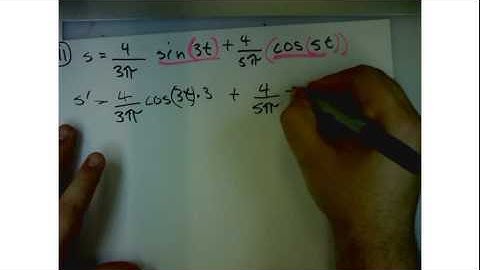 11) s = 4/3π sin(3t) + 4/5π (cos(5t))
s' = 4/3π cos(3t)·3 + 4/5π -